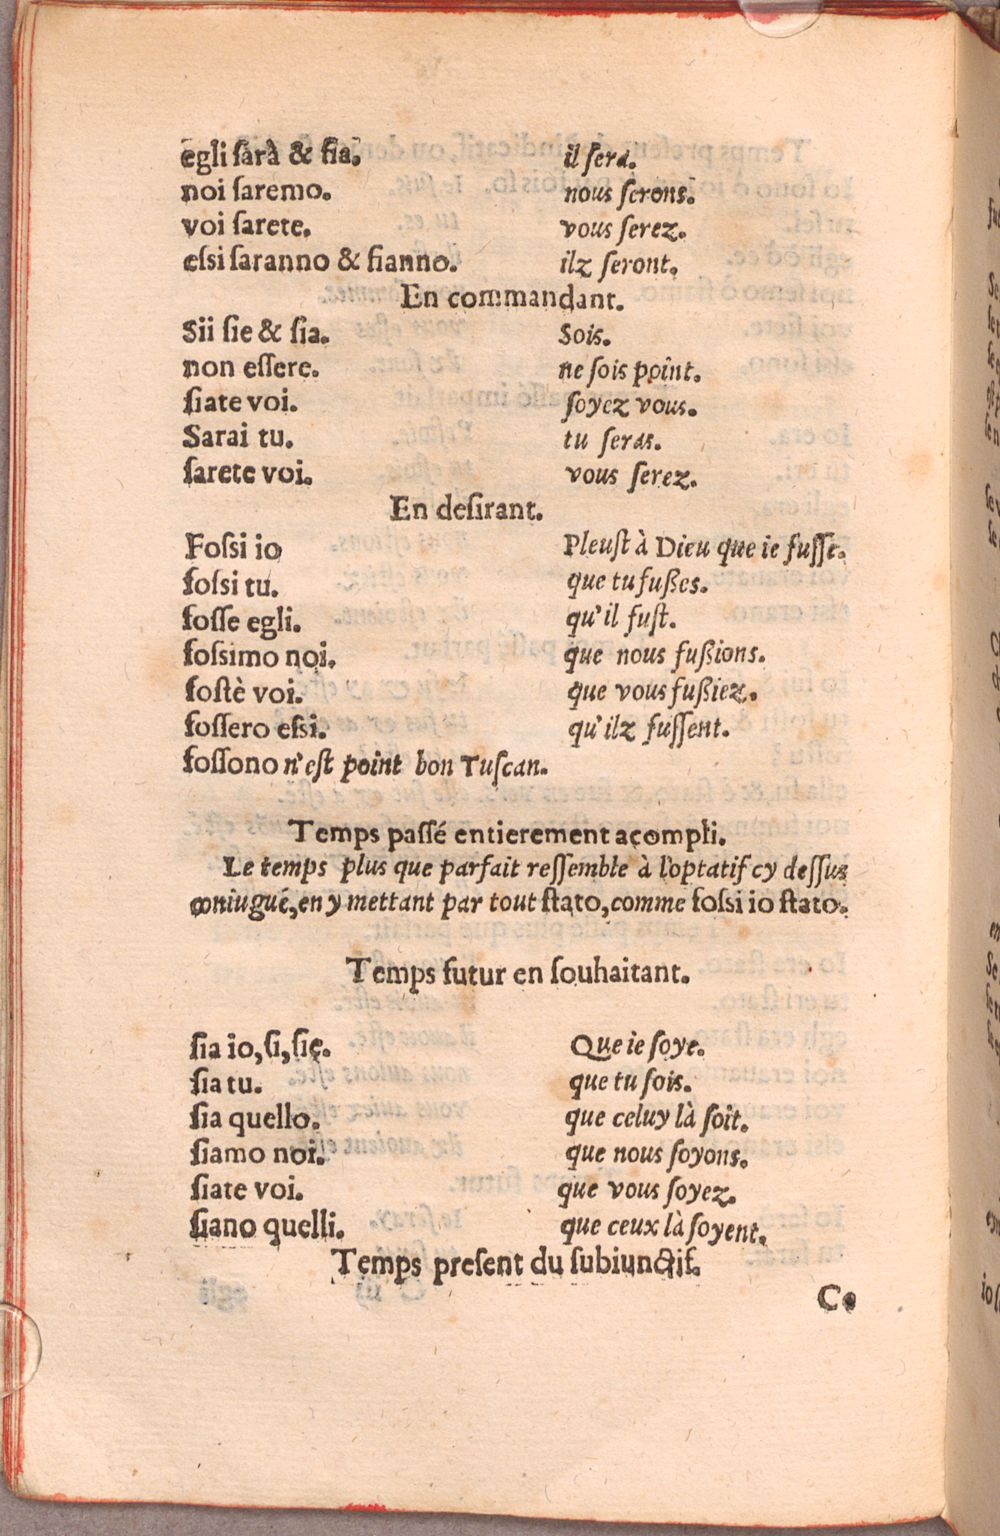 egli ſarà & fia. il ſera.
noi ſaremo. nous ſerons.
voi ſarete. vous ſerez.
eſsi ſaranno & fianno. ilz ſeront.
En commandant.
Sii ſie & ſia. Sois.
non eſſere. ne ſois point.
ſiate voi. ſoyez vous.
Sarai tu. tu ſeras.
ſarete voi. vous ſerez.
En deſirant.
Foſsi io Pleuſt à Dieu que ie fuſſe.
foſsi tu. que tu fußes.
foſſe egli. qu'il fuſt.
foſsimo noi. que nous fußions.
foſtè voi. que vous fußiez.
foſſero eſsi. qu'ilz fuſſent.
foſſono n'eſt point bon Tuſcan.
Temps paſſé entierement acompli.
Le temps plus que parfait reſſemble à l'optatif cy deſſus
coniugué, en y mettant par tout ſtato, comme foſsi io ſtato.
Temps futur en ſouhaitant.
ſia io, ſi, ſie. Que ie ſoye.
ſia tu. que tu ſois.
ſia quello. que celuy là ſoit.
ſiamo noi. que nous ſoyons.
ſiate voi. que vous ſoyez.
ſiano quelli. que ceux là ſoyent.
Temps preſent du ſubiunctif.
Co